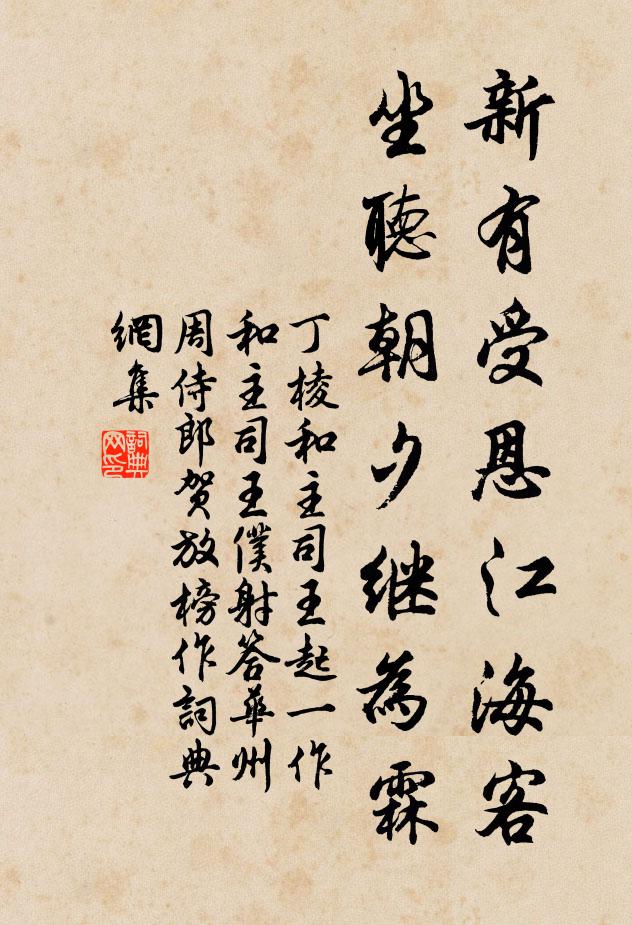 新有受恩江海客
坐聽朝夕继為霖
丁棱和主司王起一作
和主司王僕射答華州
周侍郎贺放榜作詞典
網集
詞典网印